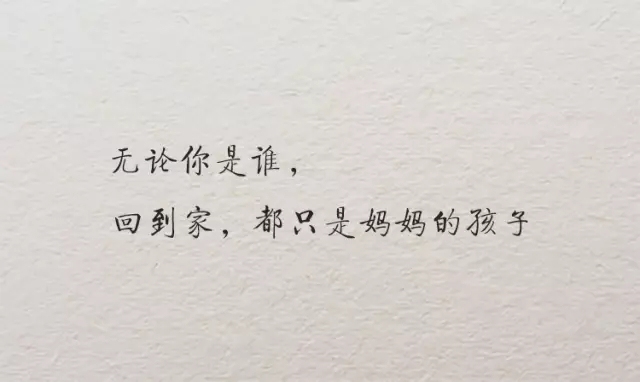 无论你是谁，
回到家，都只是妈妈的孩子